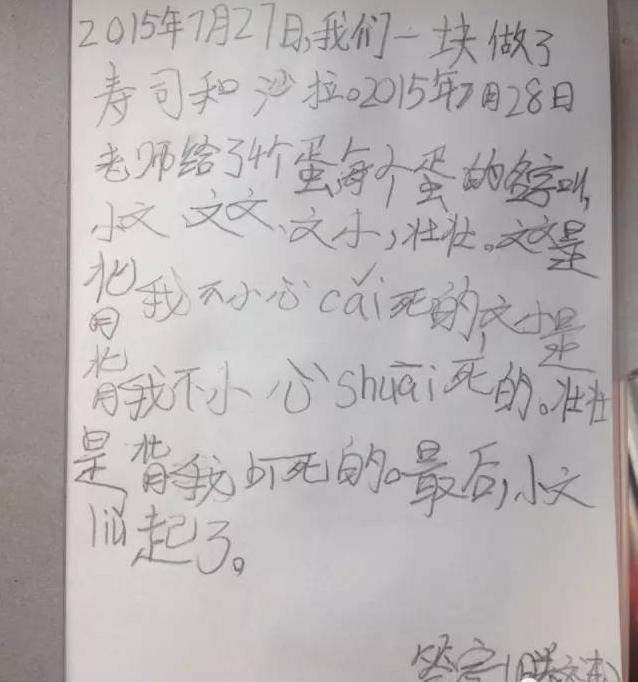 2015年7月27日,我们一块做了
寿司和沙拉。2015年7月28日
老师给了4个蛋每个蛋的名字叫,
小文、文文、文小,壮壮。文文是
背我不小心cǎi死的,文小是
背我不小心shuāi死的。壮壮
是背我吓死的。最后,小文
liú起了。
签字